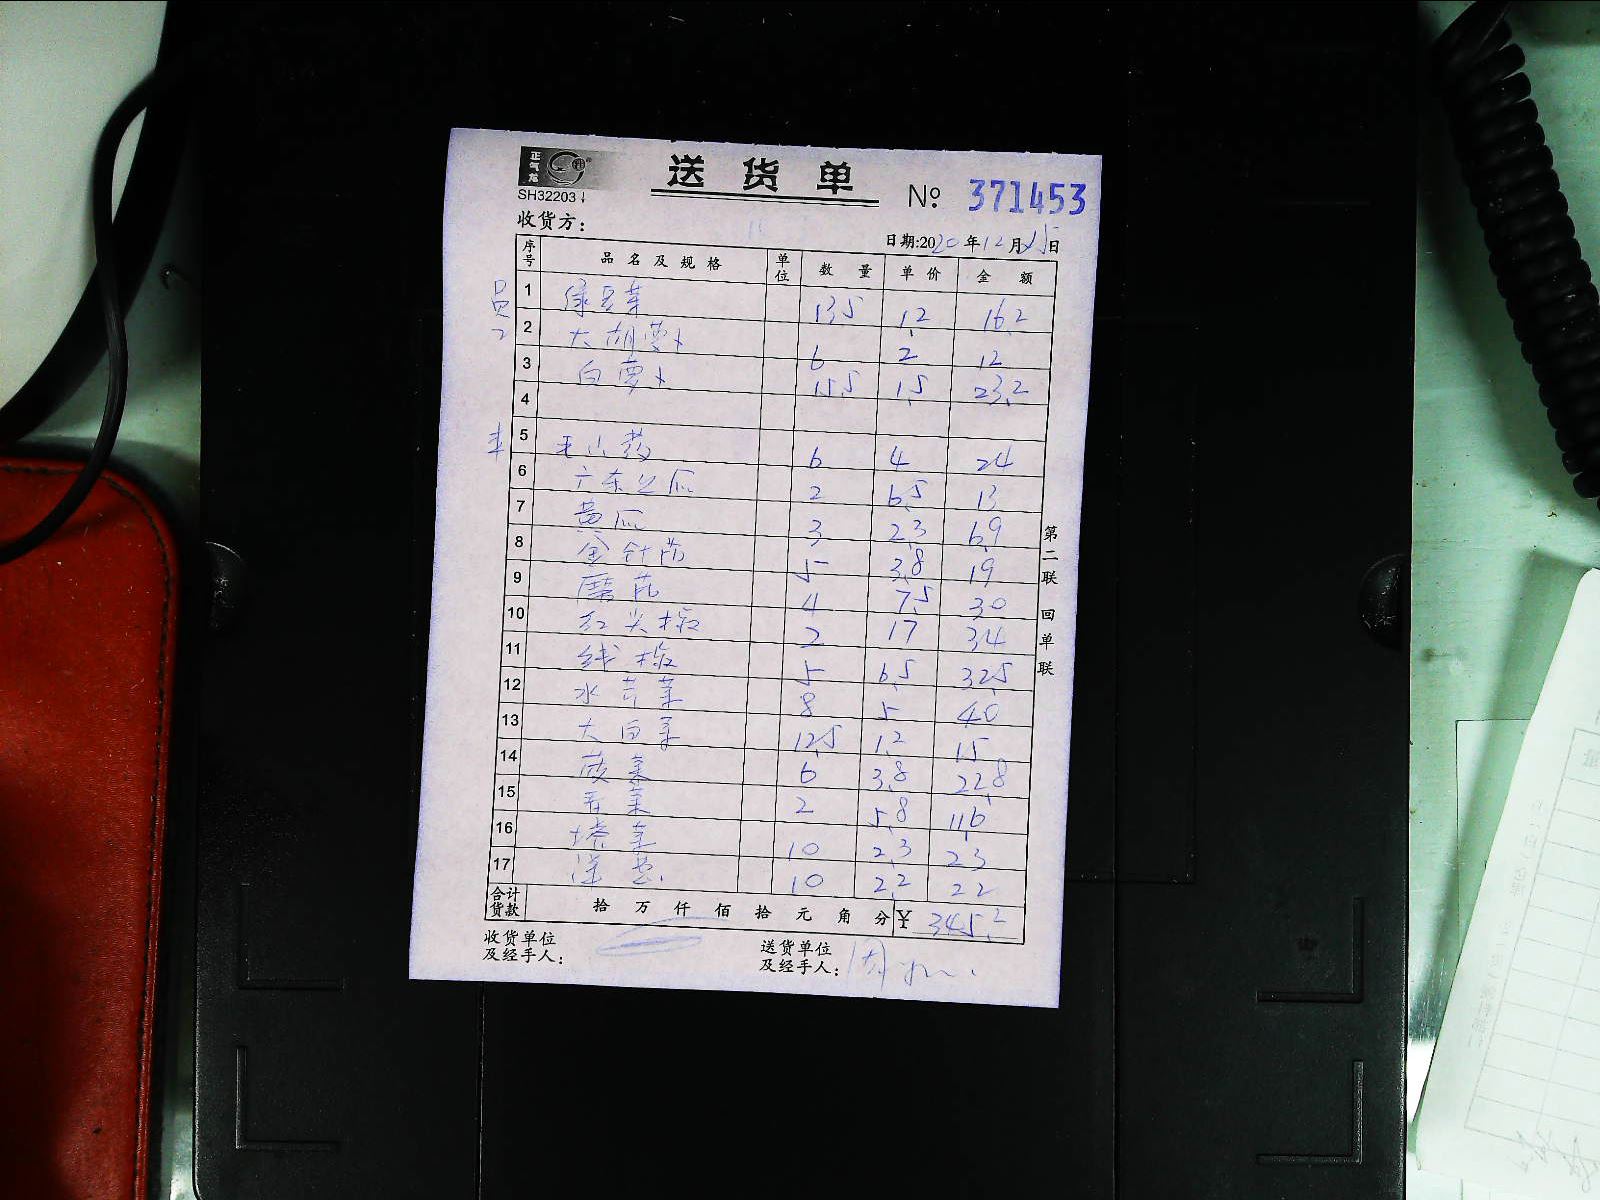 正气龙
送 货 单
SH32203
№ 371453
收货方：
日期:2020年12月15日
序号 品名及规格 单位 数量 单价 金额
员工
1 绿豆芽 13.5 1.2 16.2
2 大胡萝卜 6 2 12
3 白萝卜 15.5 1.5 23.2
4
5 毛山药 6 4 24
6 广东丝瓜 2 6.5 13
7 黄瓜 3 2.3 6.9
8 金针菇 5 3.8 19
9 蘑菇 4 7.5 30
10 红尖椒 2 17 34
11 线椒 5 6.5 32.5
12 水芹菜 8 5 40
13 大白菜 12.5 1.2 15
14 菠菜 6 3.8 22.8
15 香菜 2 5.8 11.6
16 塔菜 10 2.3 23
17 洋葱 10 2.2 22
合计货款 拾 万 仟 佰 拾 元 角 分 ¥ 345.2
收货单位及经手人：
送货单位及经手人：
第二联 回单联